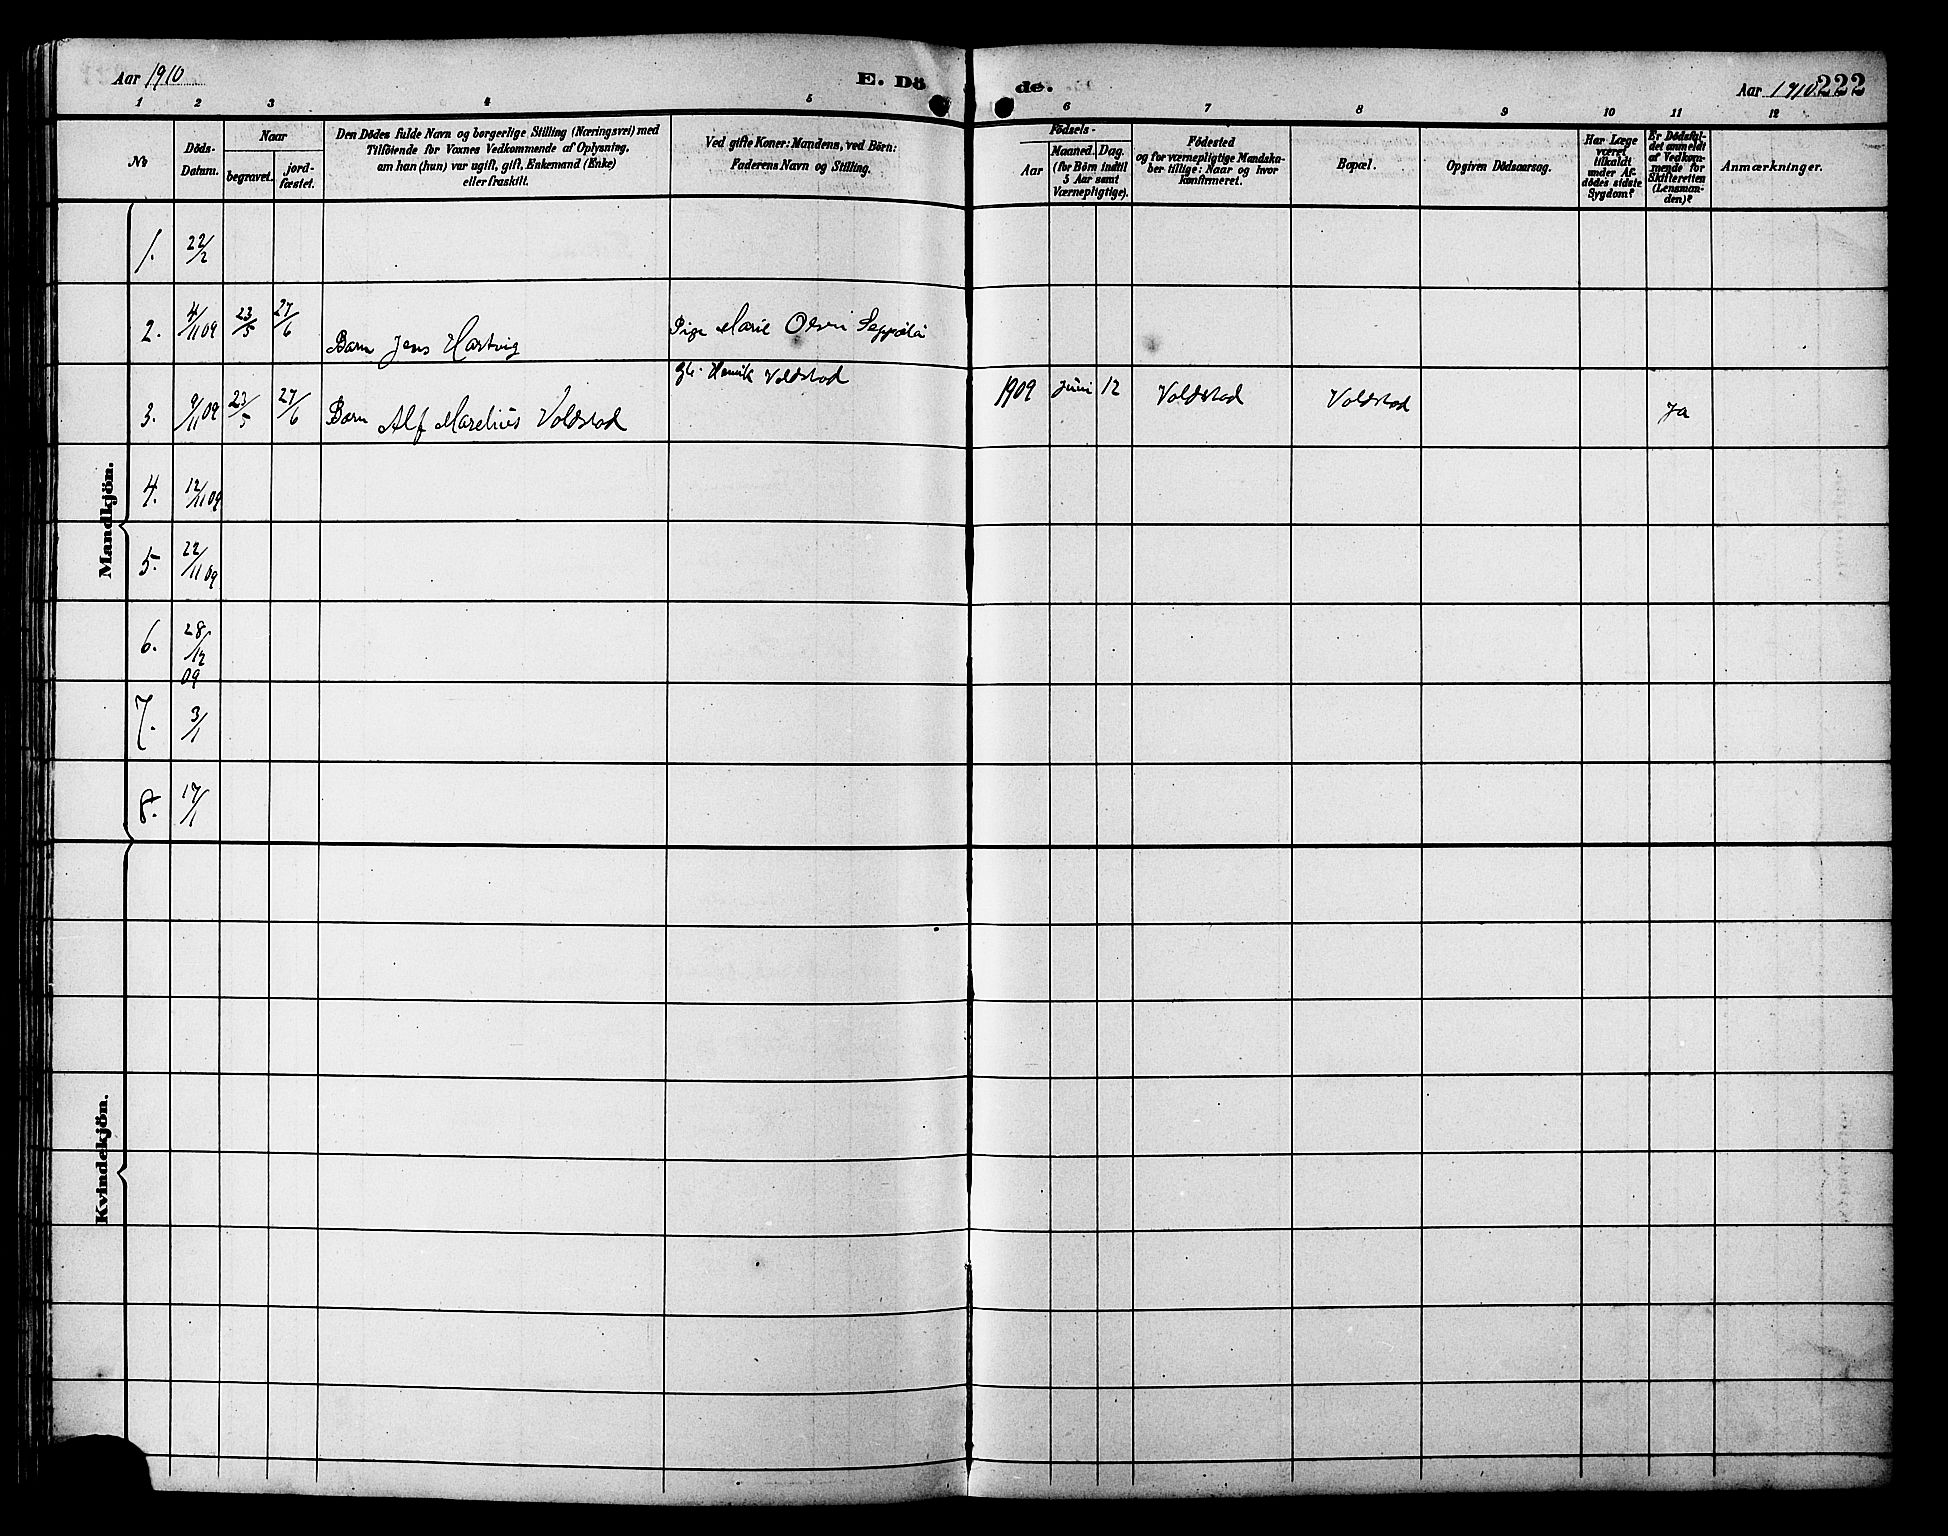 Aar 1910
E. Dö
de.
Aar 1910. 222
1 2 3 4 5 6 7 8 9 10 11 12
No
Döds-
Datum.
Naar
begravet.
jord-
fæstet.
Den Dödes fulde Navn og borgerlige Stilling (Næringsvei) med
Tilföiende for Voxnes Vedkommende af Oplysning,
om han (hun) var ugift, gift, Enkemand (Enke)
eller fraskilt.
Ved gifte Koner: Mandens, ved Börn:
Faderens Navn og Stilling.
Födsels-
Aar
Maaned. Dag.
(for Börn indtil
5 Aar samt
Værnepligtige).
Födested
og for værnepligtige Mandska-
ber tillige: Naar og hvor
konfirmeret.
Bopæl.
Opgiven Dödsaarsag.
Har Læge
været
tilkaldt
under Af-
dödes sidste
Sygdom?
Er Dödsfal-
det anmeldt
af Vedkom-
mende for
Skifteretten
(Lensman-
den)?
Anmærkninger.
Mandkjön.
1. 22/2
2. 4/11 09 23/5 27/6 Barn Jens Hartvig Pige Marie Olsen Seppälä
3. 9/11 09 23/5 27/6 Barn Alf Marelius Voldstad Henrik Voldstad 1909 Juni 12 Voldstad Voldstad Ja
4. 12/11 09
5. 22/11 09
6. 28/12 09
7. 3/1
8. 17/1
Kvindekjön.